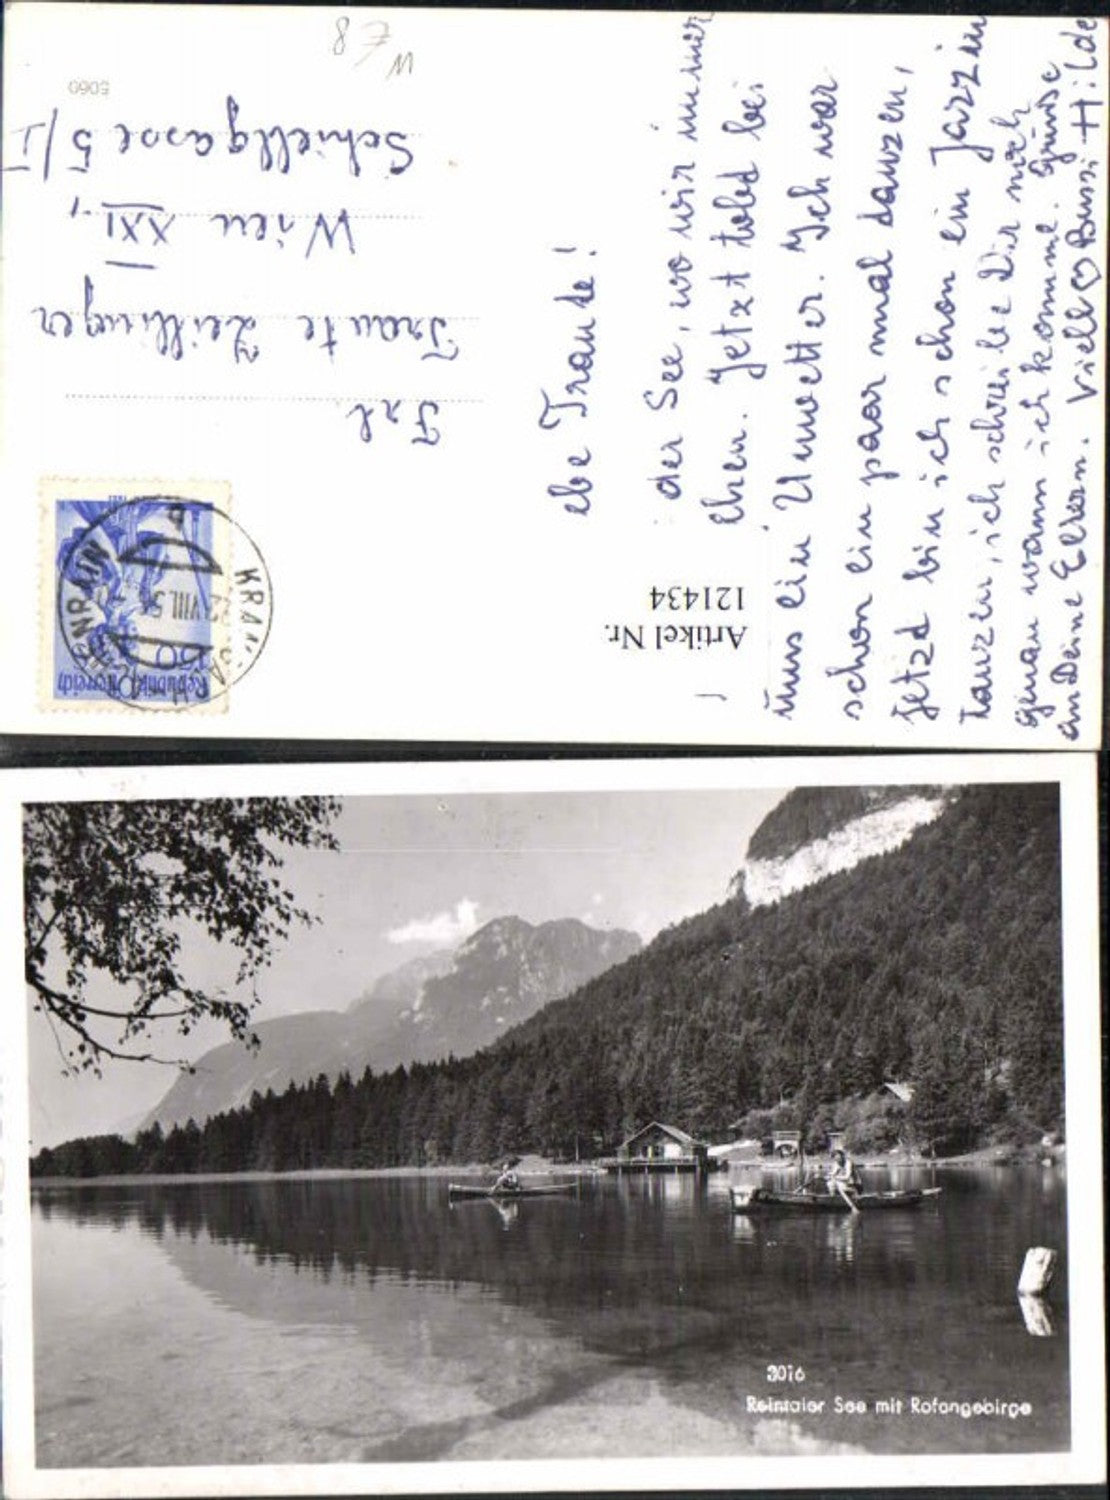 W
€ 8
5060
Frl.
Traute Zeillinger
Wien XXI.,
Schiellgasse 5/I
Republik Österreich
1.50
KRAMSACH-ACHENRAIN
VIII.5
a
Artikel Nr.
121434
ebe Traute!
der See, wo wir immer
chen. Jetzt tobt bei
uns ein Unwetter. Ich war
schon ein paar mal tanzen,
Jetzt bin ich schon ein Jazz in
Tanzen, ich schreibe Dir noch
genau wann ich komme. Grüsse
an Deine Eltern. Viele ♡ Bussi Hilde
3016
Reintaler See mit Rofangebirge